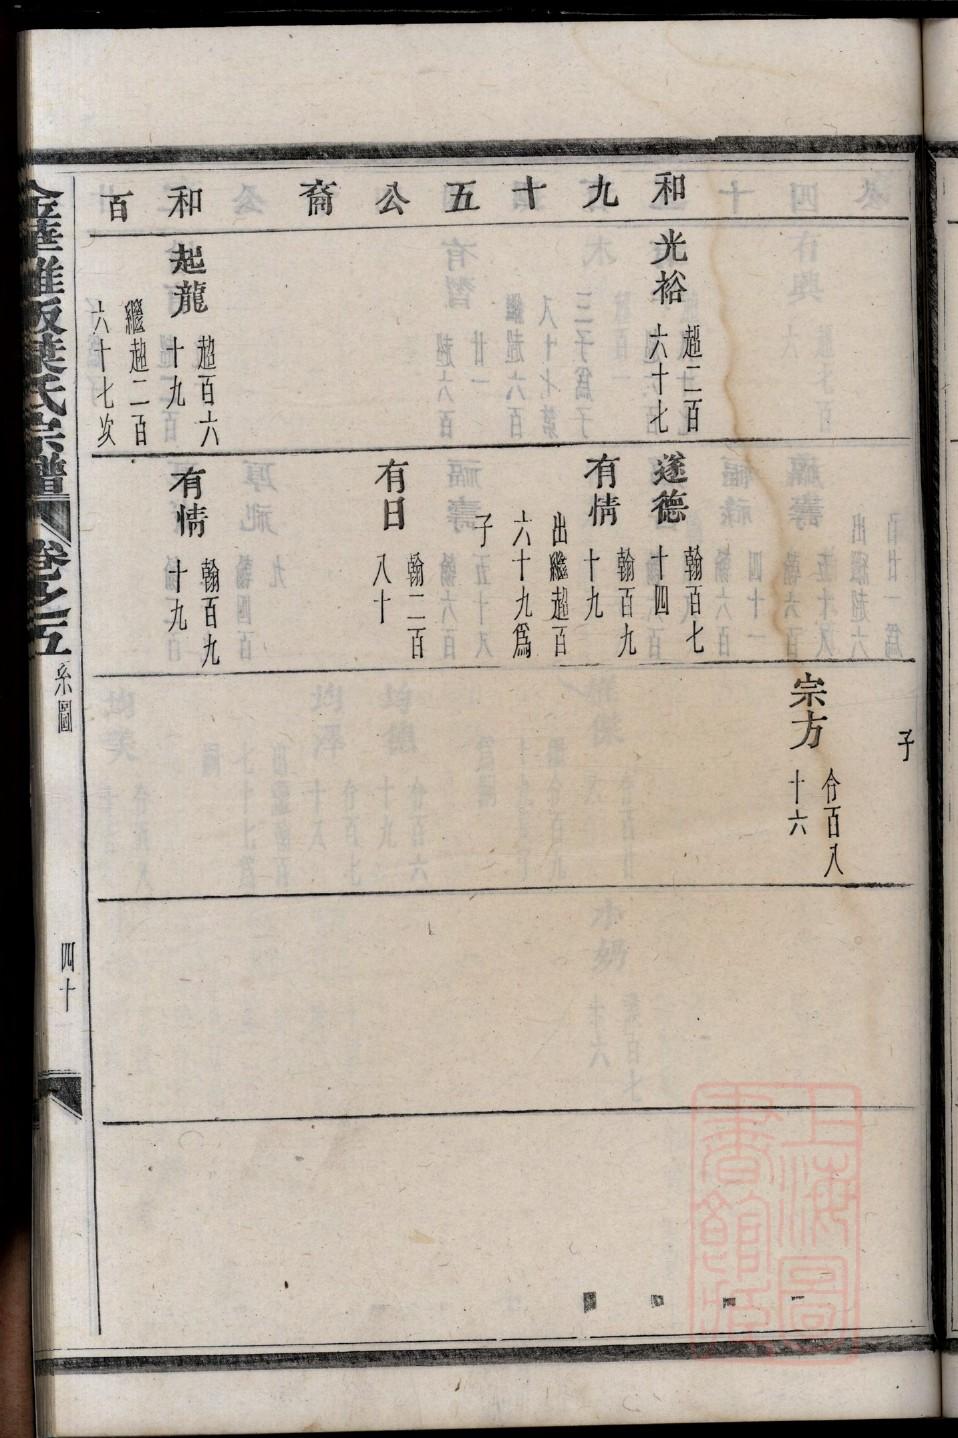 和九十五公裔
和百
光裕
超二百
六十七
起龍
超百六
十九
繼超二百
六十七次
子
遂德
翰百七
十四
有情
翰百九
十九
出繼超百
六十九爲
子
有日
翰二百
八十
有情
翰百九
十九
宗方
十六
卷之五
系圖
四十
上海圖
書館藏